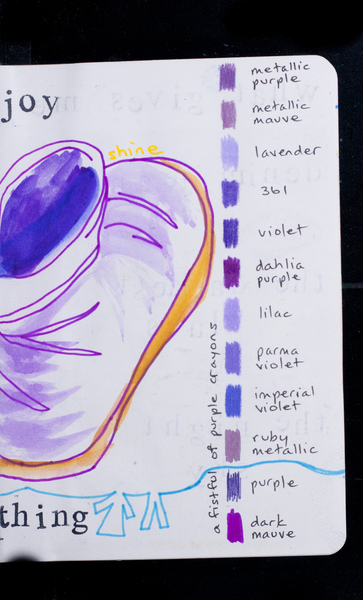 joy
shine
metallic
purple
metallic
mauve
lavender
361
violet
dahlia
purple
lilac
parma
violet
imperial
violet
ruby
metallic
purple
dark
mauve
a fistful of purple crayons
thing